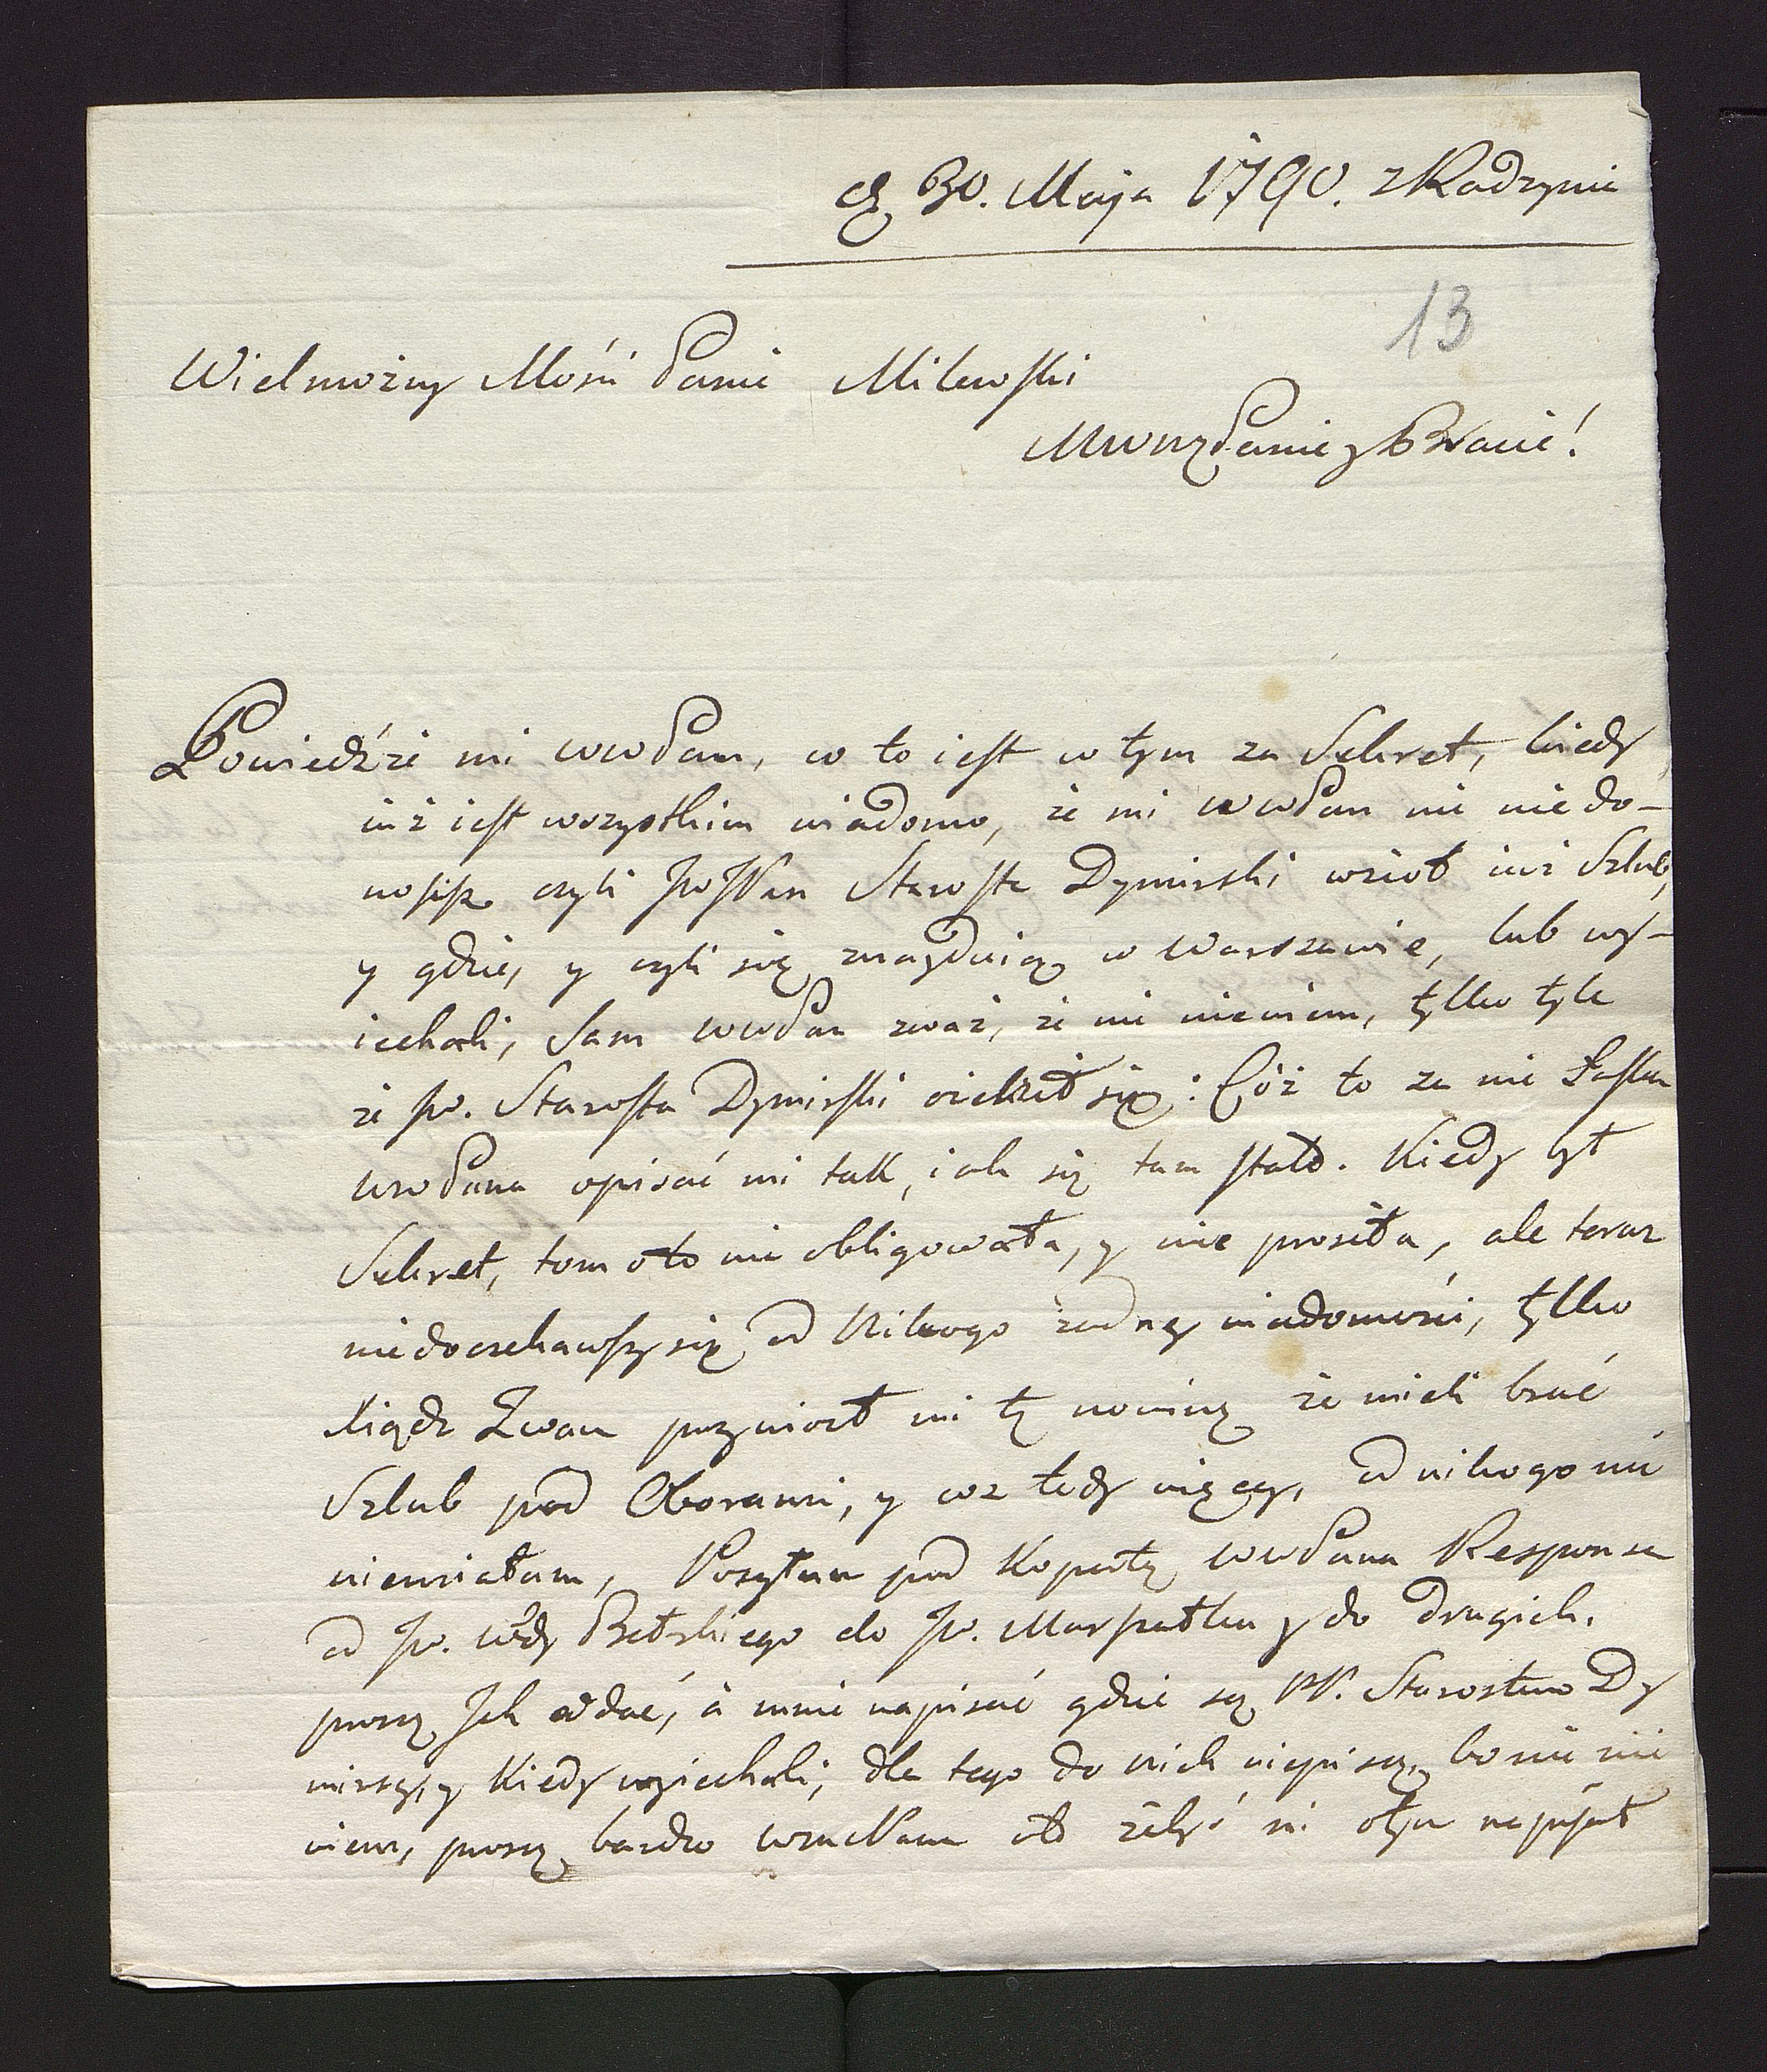 d 30. Maja 1790. z Radzynia
13
Wielmożny Mości Panie Milewski
Mwny Panie y Bracie!
Powiedźże mi WWPan, co to iest w tym za Sekret, kiedy
iuż iest wszystkim wiadomo, że mi WWPan nic niedo-
nosisz czyli JW JPan Starosta Dymirski wzioł iuż Szlub,
y gdzie, y czyli się znayduią w Warszawie, lub wy-
iechali, Sam WWPan zważ, że nic niewiem, tylko tyle
że Jw. Starosta Dymirski ożenił się: Cóż to za nie Łaska
WWPana opisać mi tak, iak się tam stało. Kiedy był
Sekret, tom oto nie obligowała, y nie prosiła, ale teraz
niedoczekawszy się od Nikogo żadney wiadomości, tylko
Xiądz Iwan przyniosł mi tę nowinę że mieli brać
Szlub pod Oborami, y coż tedy więcey, od nikogo nic
niemiałam, Posyłam pod Kopertą WWPana Responsa
od Jw. Wdy Bełzkiego do Jw. Marszałka y do drugich.
proszę Jch oddać, á mnie napisać gdzie są PP. Starostwo Dy
mirscy, y Kiedy wyiechali, dla tego do nich niepiszę, bo nic nie
wiem, proszę bardzo WmcPana oto żebyś mi otym napisał